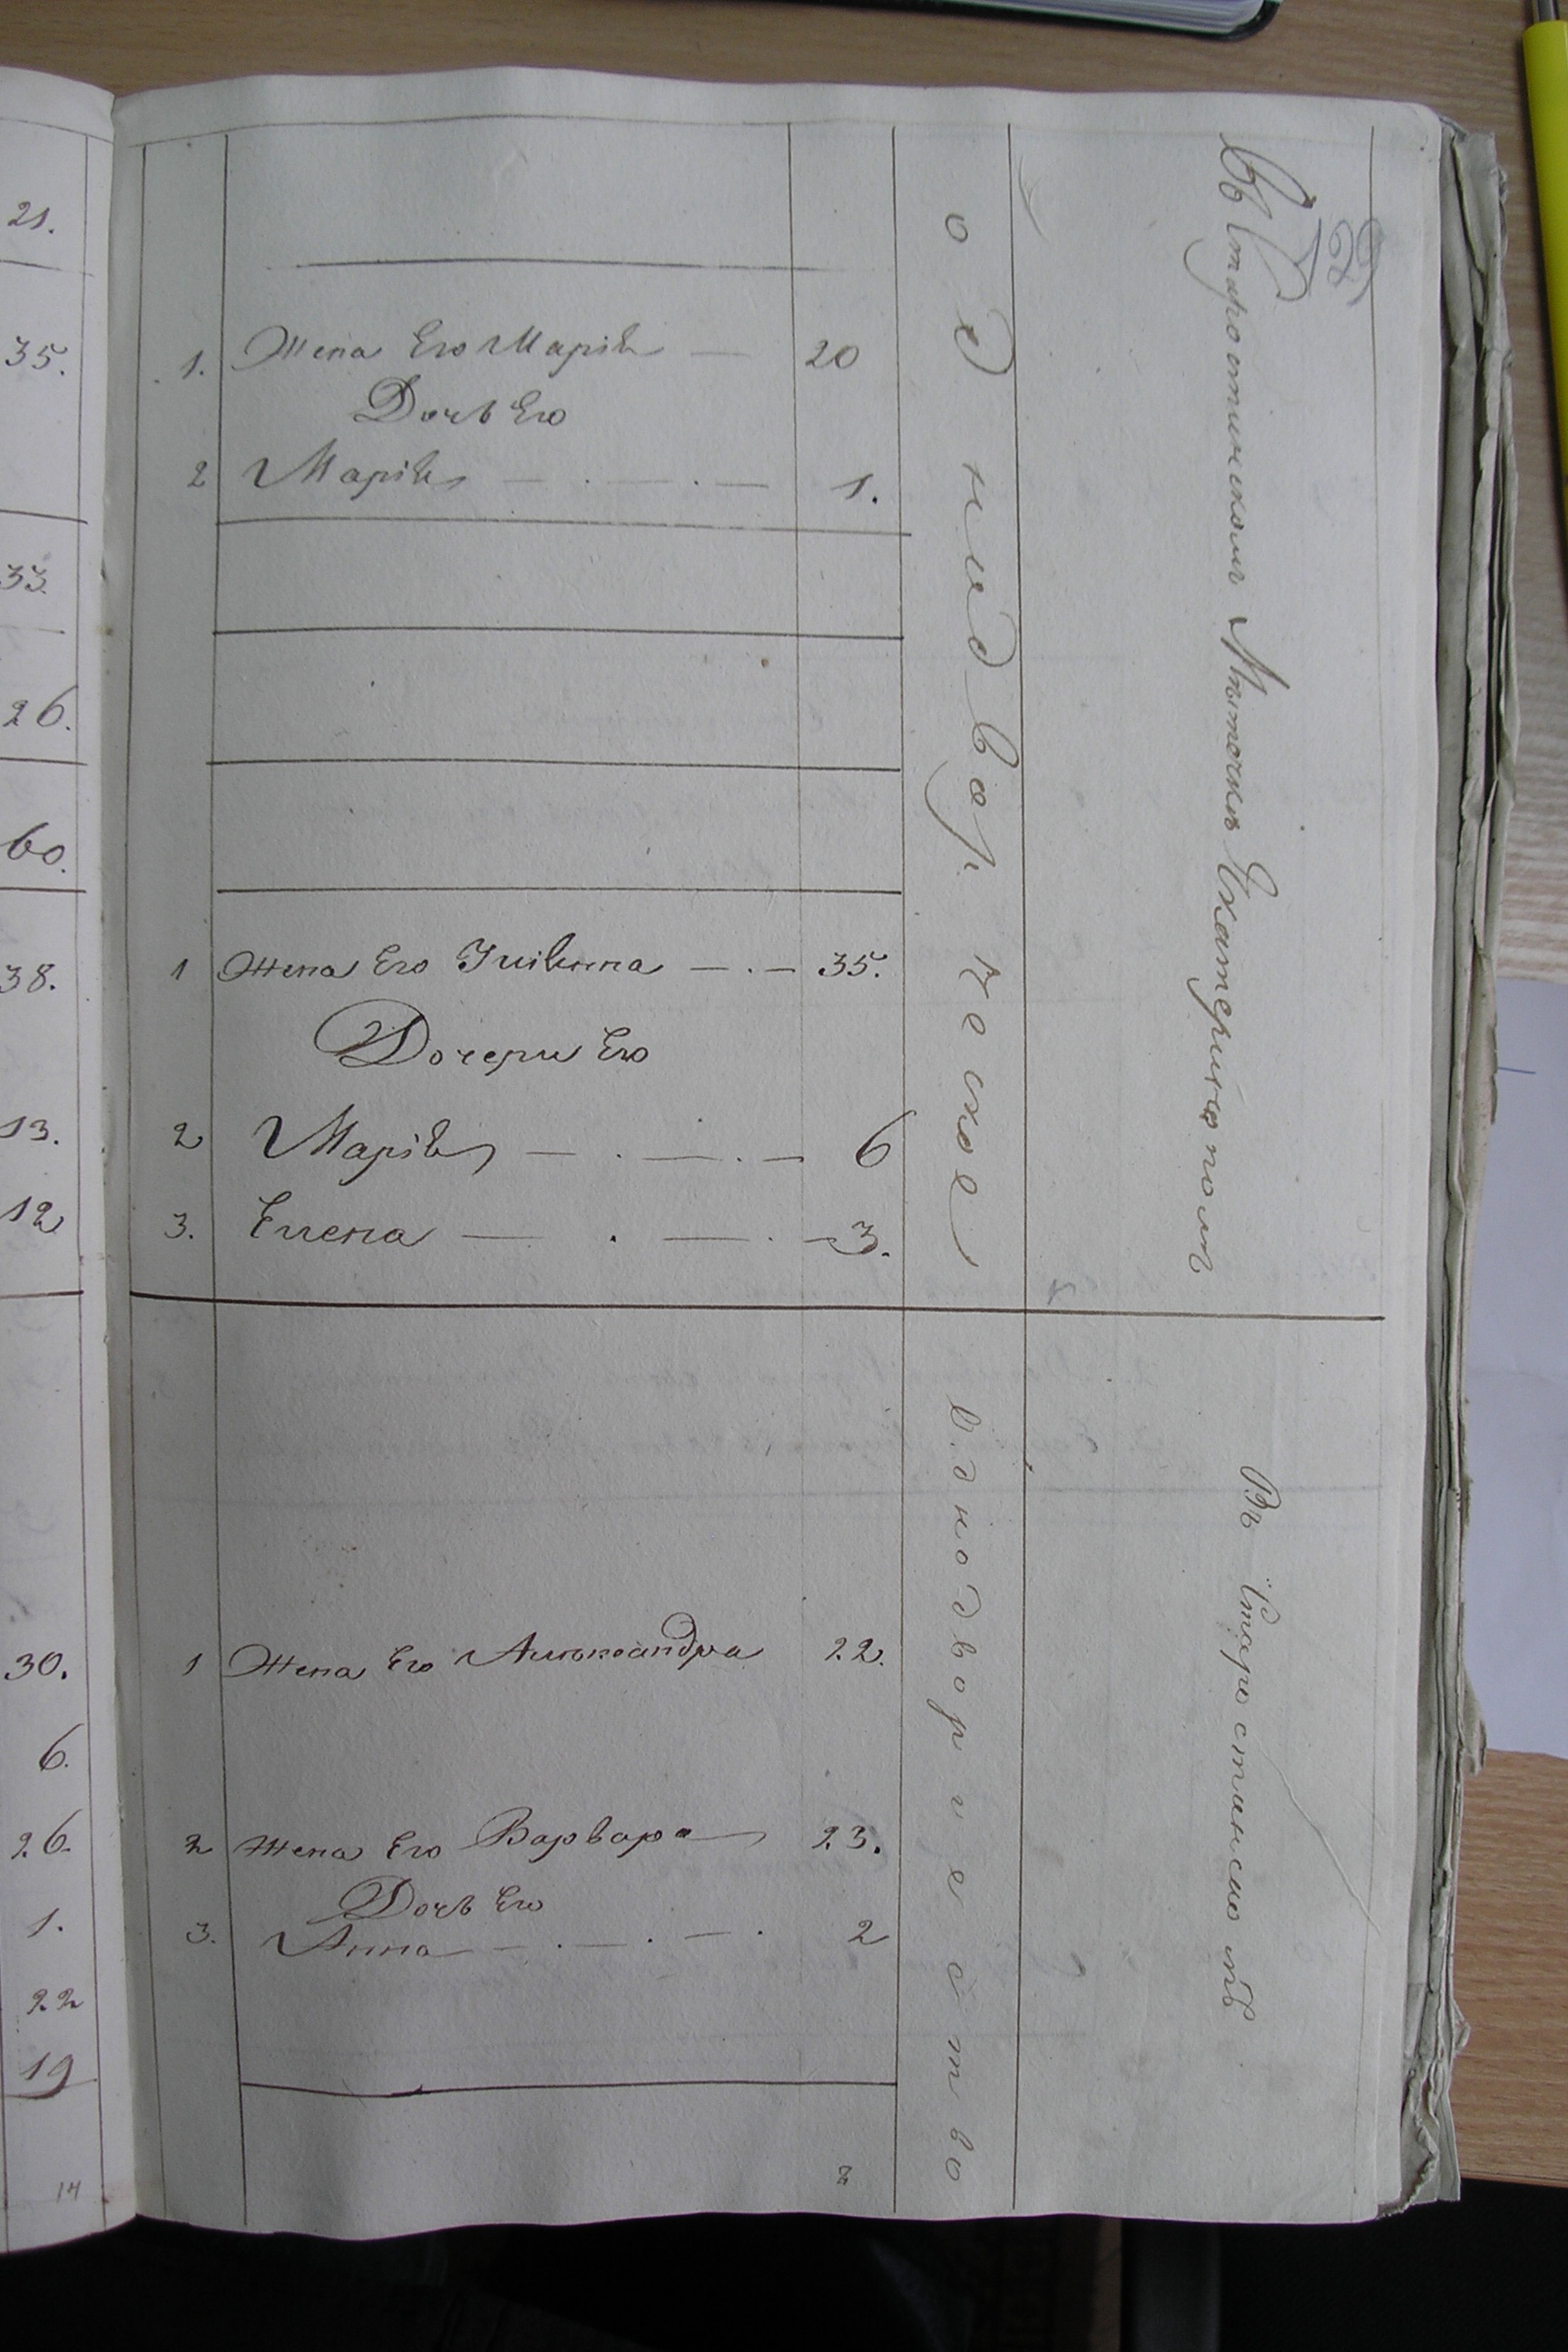 21.
35.
33.
26.
60.
38.
13.
12
30.
6.
26.
1.
22
19
14
1. Жена Его Марія — 20
Дочь Его
2 Марія — . — . — 1.
1 Жена Его Іиліяна — . — 35.
Дочери Его
2 Марія — . — . — 6
3. Елена — . — . — 3.
1 Жена Его Александра 22.
2 Жена Его Варвара 23.
Дочь Его
3. Анна — . — . — . 2
8
однодворческое
Въ Екатеринополѣ
однодворчество
Въ